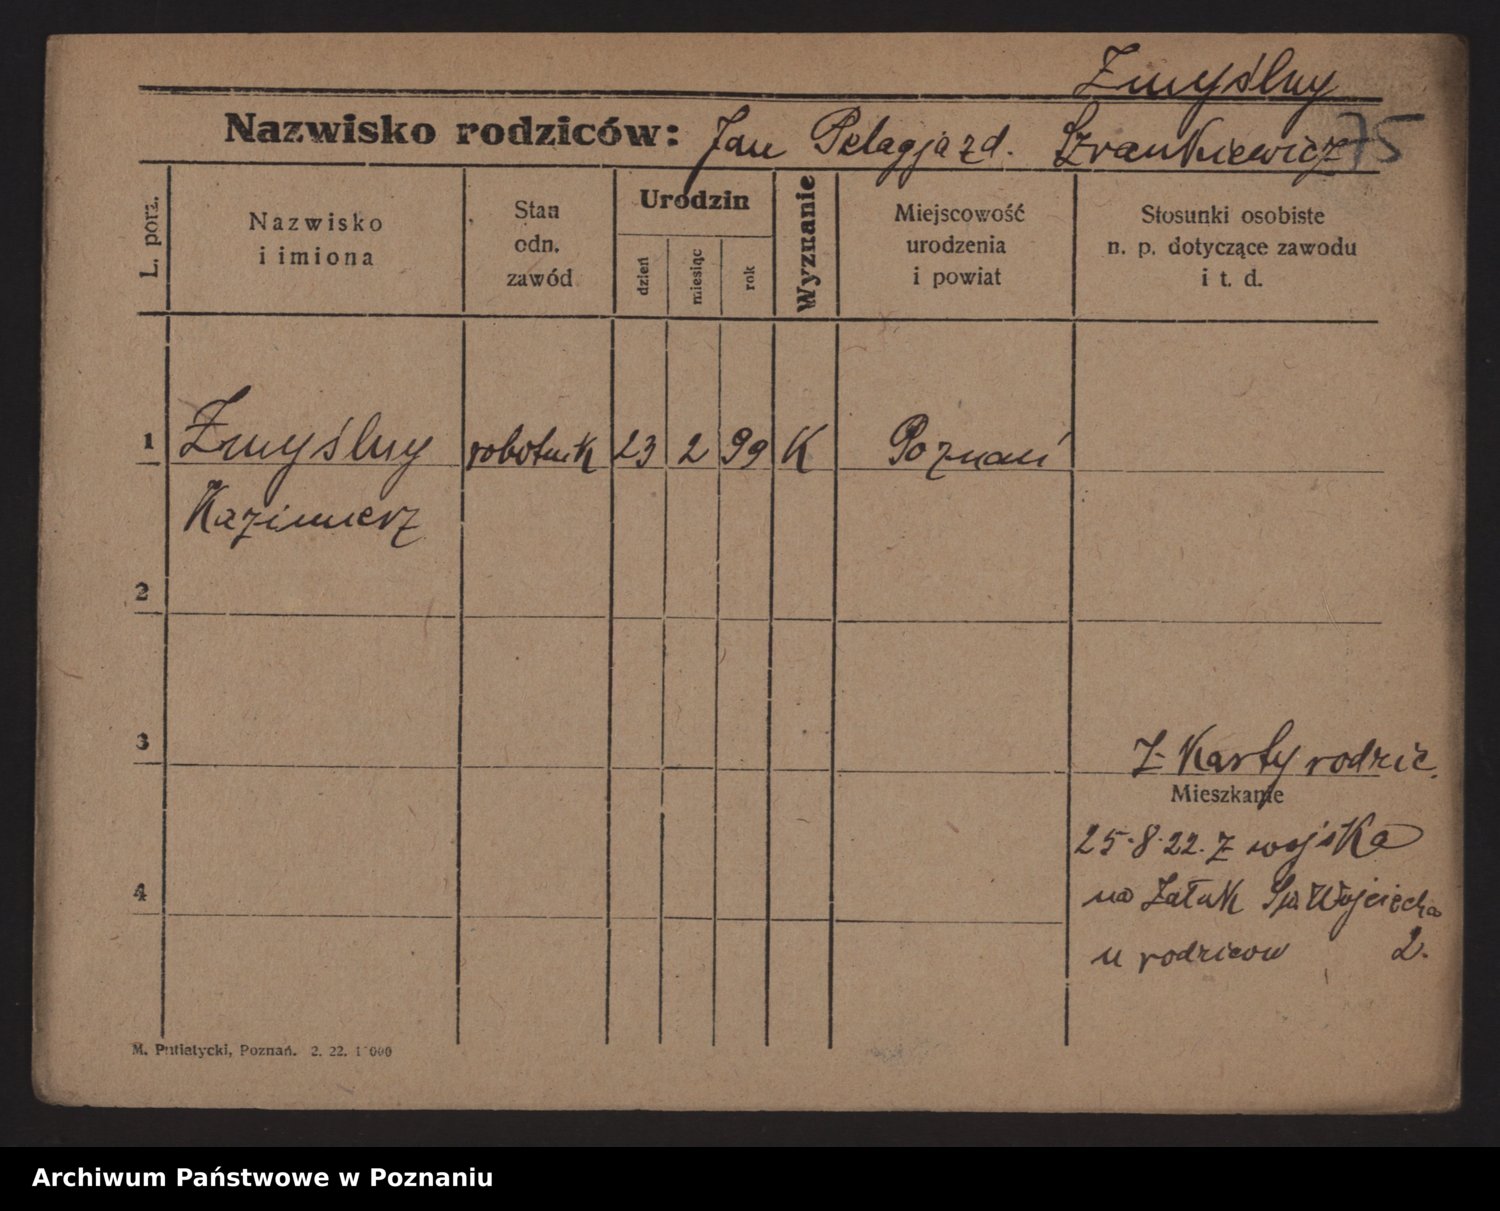 Zmyślny
Nazwisko rodziców: Jan Pelagja zd. Szrankiewicz 75
L. porz.
Nazwisko
i imiona
Stan
odn.
zawód
Urodzin
dzień
miesiąc
rok
Wyznanie
Miejscowość
urodzenia
i powiat
Stosunki osobiste
n. p. dotyczące zawodu
i t. d.
1 Zmyślny robotnik 23 2 99 K Poznań
Kazimierz
2
3
Z Karty rodzic.
Mieszkanie
25.8.22. z wojska
4
na Wojciecha
u rodzicow 2.
M. Putiatycki, Poznań. 2. 22.
Archiwum Państwowe w Poznaniu